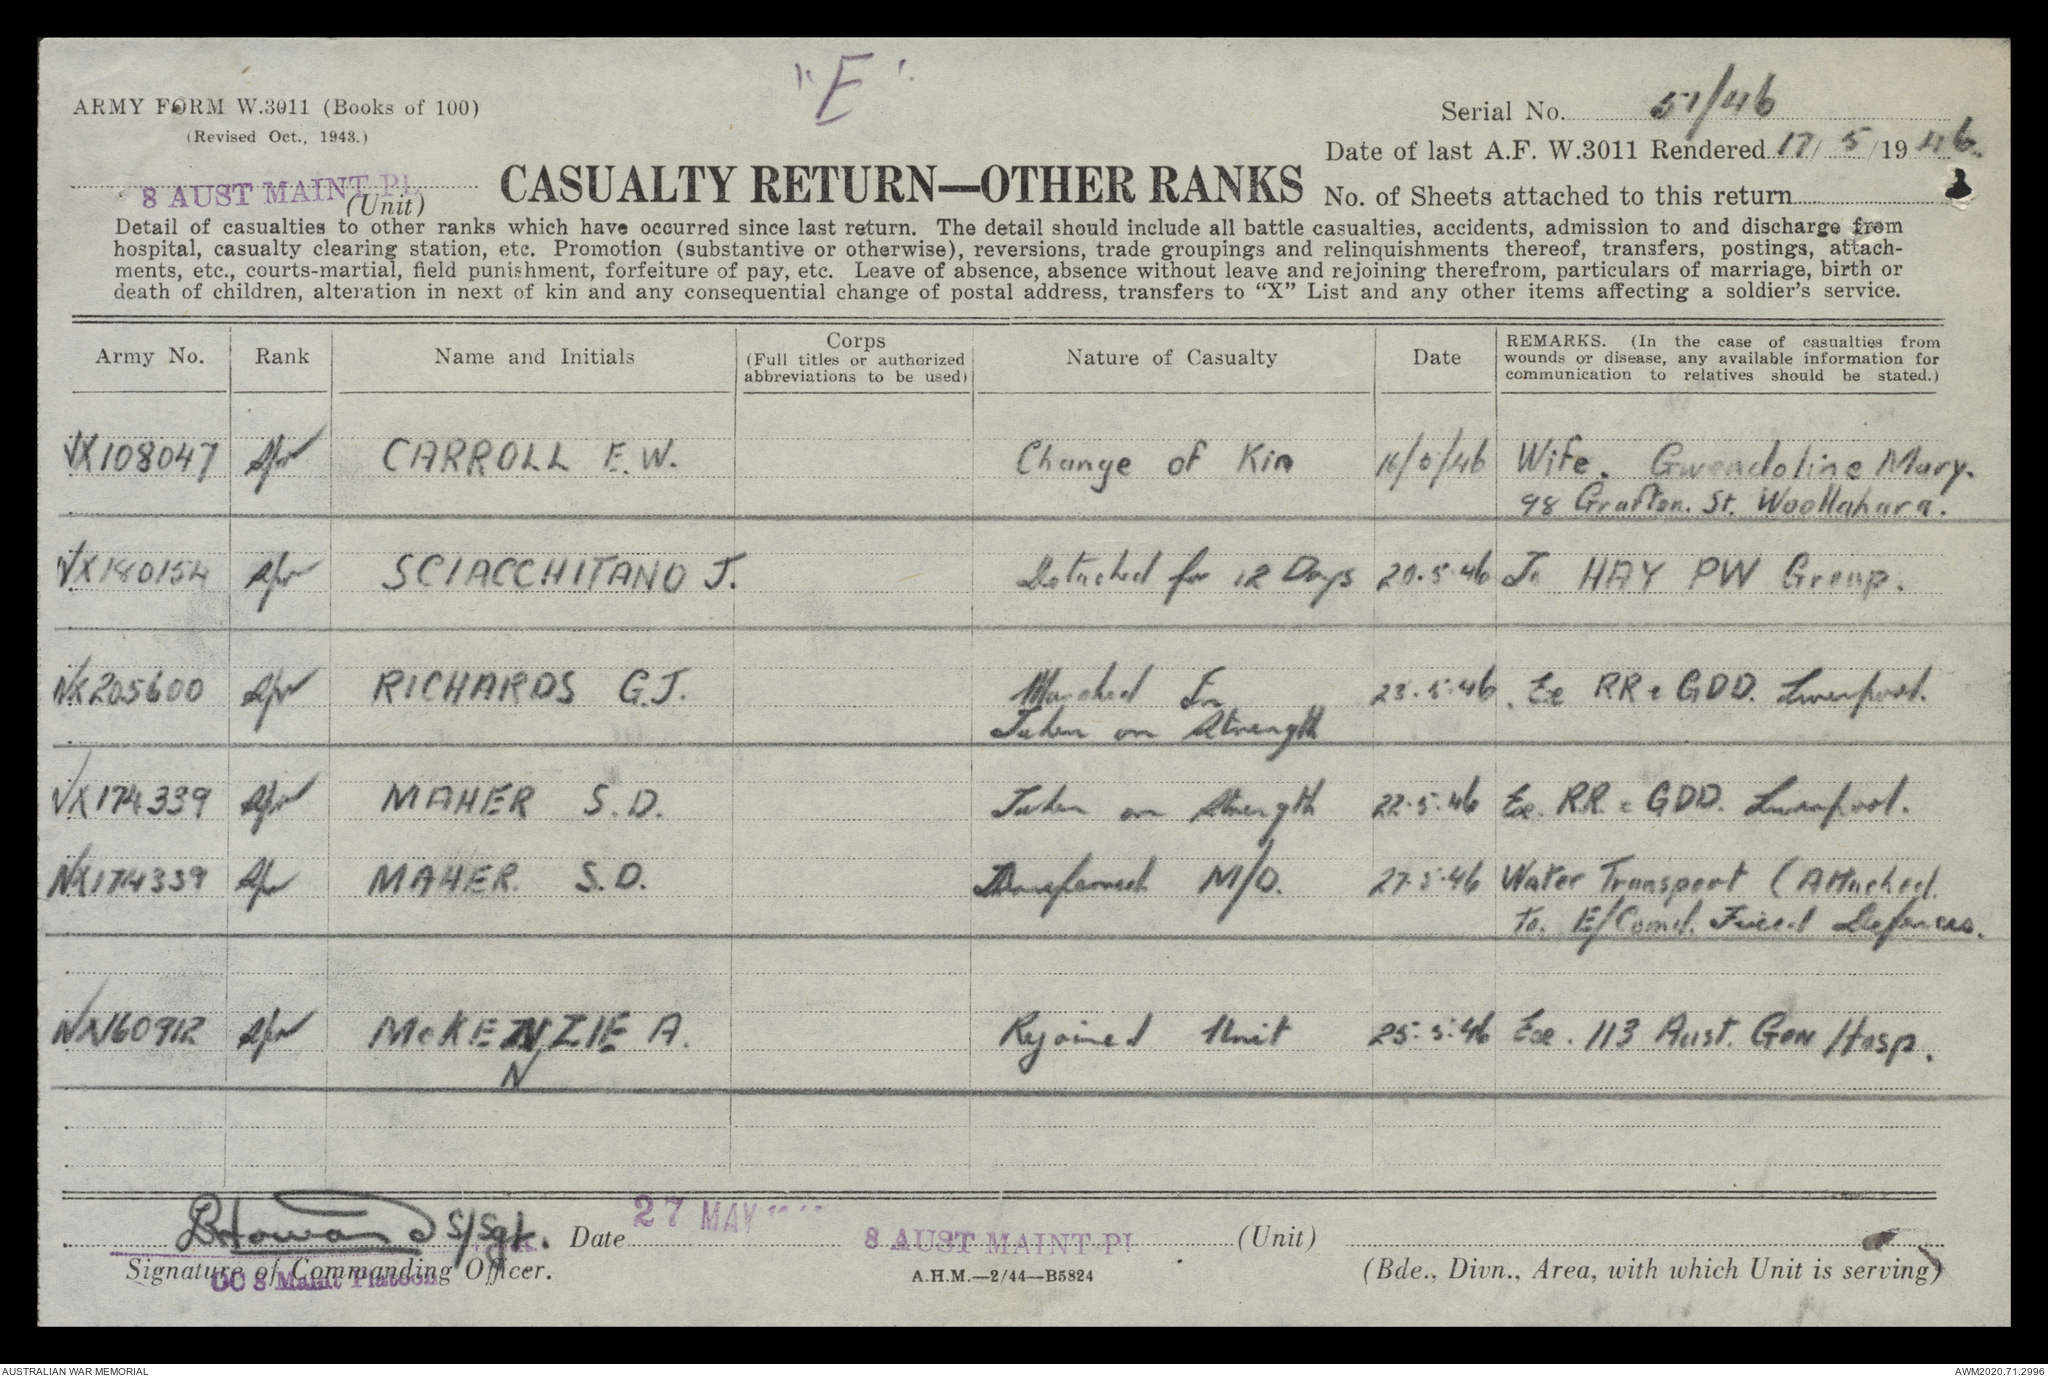 "E"
ARMY FORM W.3011 (Books of 100)
(Revised Oct., 1943.)
Serial No. 51/46
Date of last A.F. W.3011 Rendered 17/5/1946.
8 AUST MAINT PL
(Unit)
CASUALTY RETURN—OTHER RANKS
No. of Sheets attached to this return
Detail of casualties to other ranks which have occurred since last return. The detail should include all battle casualties, accidents, admission to and discharge from
hospital, casualty clearing station, etc. Promotion (substantive or otherwise), reversions, trade groupings and relinquishments thereof, transfers, postings, attach-
ments, etc., courts-martial, field punishment, forfeiture of pay, etc. Leave of absence, absence without leave and rejoining therefrom, particulars of marriage, birth or
death of children, alteration in next of kin and any consequential change of postal address, transfers to "X" List and any other items affecting a soldier's service.
Army No. Rank Name and Initials Corps (Full titles or authorized abbreviations to be used) Nature of Casualty Date REMARKS. (In the case of casualties from
wounds or disease, any available information for
communication to relatives should be stated.)
108047 Spr CARROLL E.W. Change of Kin 16/5/46 Wife. Gwendoline Mary.
98 Grafton. St. Woollahara.
180154 Spr SCIACCHITANO J. Detached for 12 Days 20.5.46 To HAY PW Group.
NX205600 Spr RICHARDS G.J. Marched In 23.5.46. Ex RR & GDD. Liverpool.
Taken on Strength
174339 Spr MAHER S.D. Taken on Strength 22.5.46 Ex. RR. & GDD. Liverpool.
NX174339 Spr MAHER. S.D. Transferred M/O. 27.5.46 Water Transport (Attached.
To. E/Comd. Fixed Defences.
NX160912 Spr McKENZIE A. Rejoined Unit 25.5.46 Ex. 113 Aust. Gen Hosp.
N
BHoward S/Sgt. Date 27 MAY 8 AUST MAINT Pl (Unit)
Signature of Commanding Officer. A.H.M.—2/44—B5824 (Bde., Divn., Area, with which Unit is serving)
OC 8 Maint Platoon
AUSTRALIAN WAR MEMORIAL AWM2020.71.2996